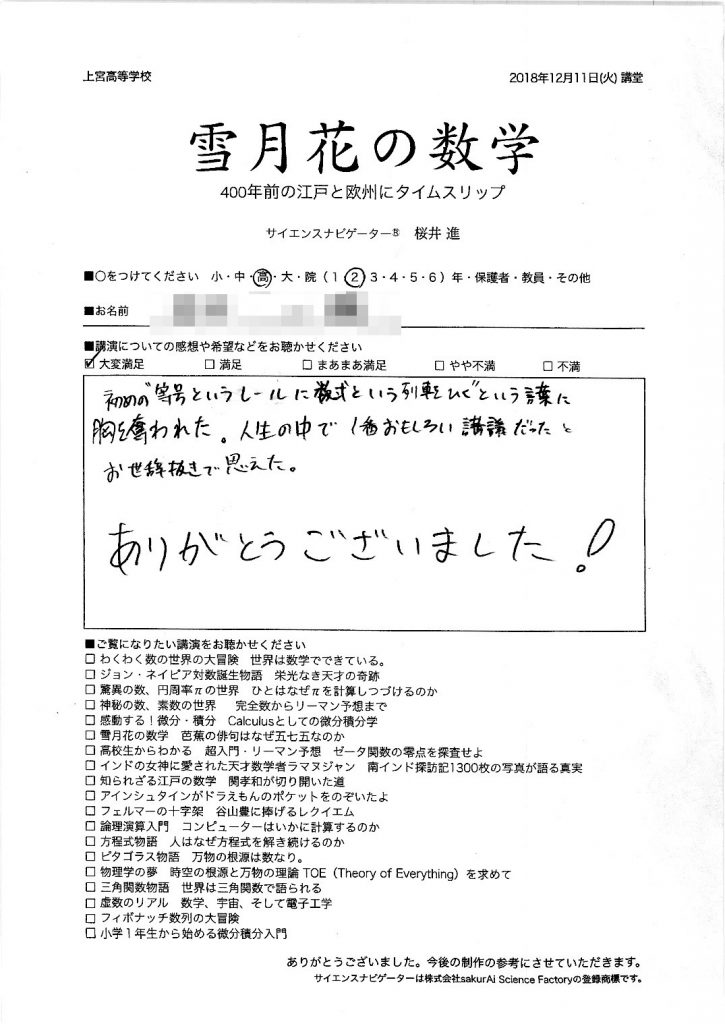 上宮高等学校
2018年12月11日(火) 講堂
雪月花の数学
400年前の江戸と欧州にタイムスリップ
サイエンスナビゲーター® 桜井 進
■○をつけてください 小・中・高・大・院（1・2・3・4・5・6）年・保護者・教員・その他
■お名前
■講演についての感想や希望などをお聴かせください
☑ 大変満足 □ 満足 □ まあまあ満足 □ やや不満 □ 不満
初めの"等号というレールに数式という列車をひく"という言葉に
胸を奪われた。人生の中で1番おもしろい講議だったと
お世辞抜きで思えた。
ありがとうございました！
■ご覧になりたい講演をお聴かせください
□ わくわく数の世界の大冒険 世界は数学でできている。
□ ジョン・ネイピア対数誕生物語 栄光なき天才の奇跡
□ 驚異の数、円周率πの世界 ひとはなぜπを計算しつづけるのか
□ 神秘の数、素数の世界 完全数からリーマン予想まで
□ 感動する！微分・積分 Calculusとしての微分積分学
□ 雪月花の数学 芭蕉の俳句はなぜ五七五なのか
□ 高校生からわかる 超入門・リーマン予想 ゼータ関数の零点を探査せよ
□ インドの女神に愛された天才数学者ラマヌジャン 南インド探訪記1300枚の写真が語る真実
□ 知られざる江戸の数学 関孝和が切り開いた道
□ アインシュタインがドラえもんのポケットをのぞいたよ
□ フェルマーの十字架 谷山豊に捧げるレクイエム
□ 論理演算入門 コンピューターはいかに計算するのか
□ 方程式物語 人はなぜ方程式を解き続けるのか
□ ピタゴラス物語 万物の根源は数なり。
□ 物理学の夢 時空の根源と万物の理論 TOE（Theory of Everything）を求めて
□ 三角関数物語 世界は三角関数で語られる
□ 虚数のリアル 数学、宇宙、そして電子工学
□ フィボナッチ数列の大冒険
□ 小学1年生から始める微分積分入門
ありがとうございました。今後の制作の参考にさせていただきます。
サイエンスナビゲーターは株式会社sakurAi Science Factoryの登録商標です。